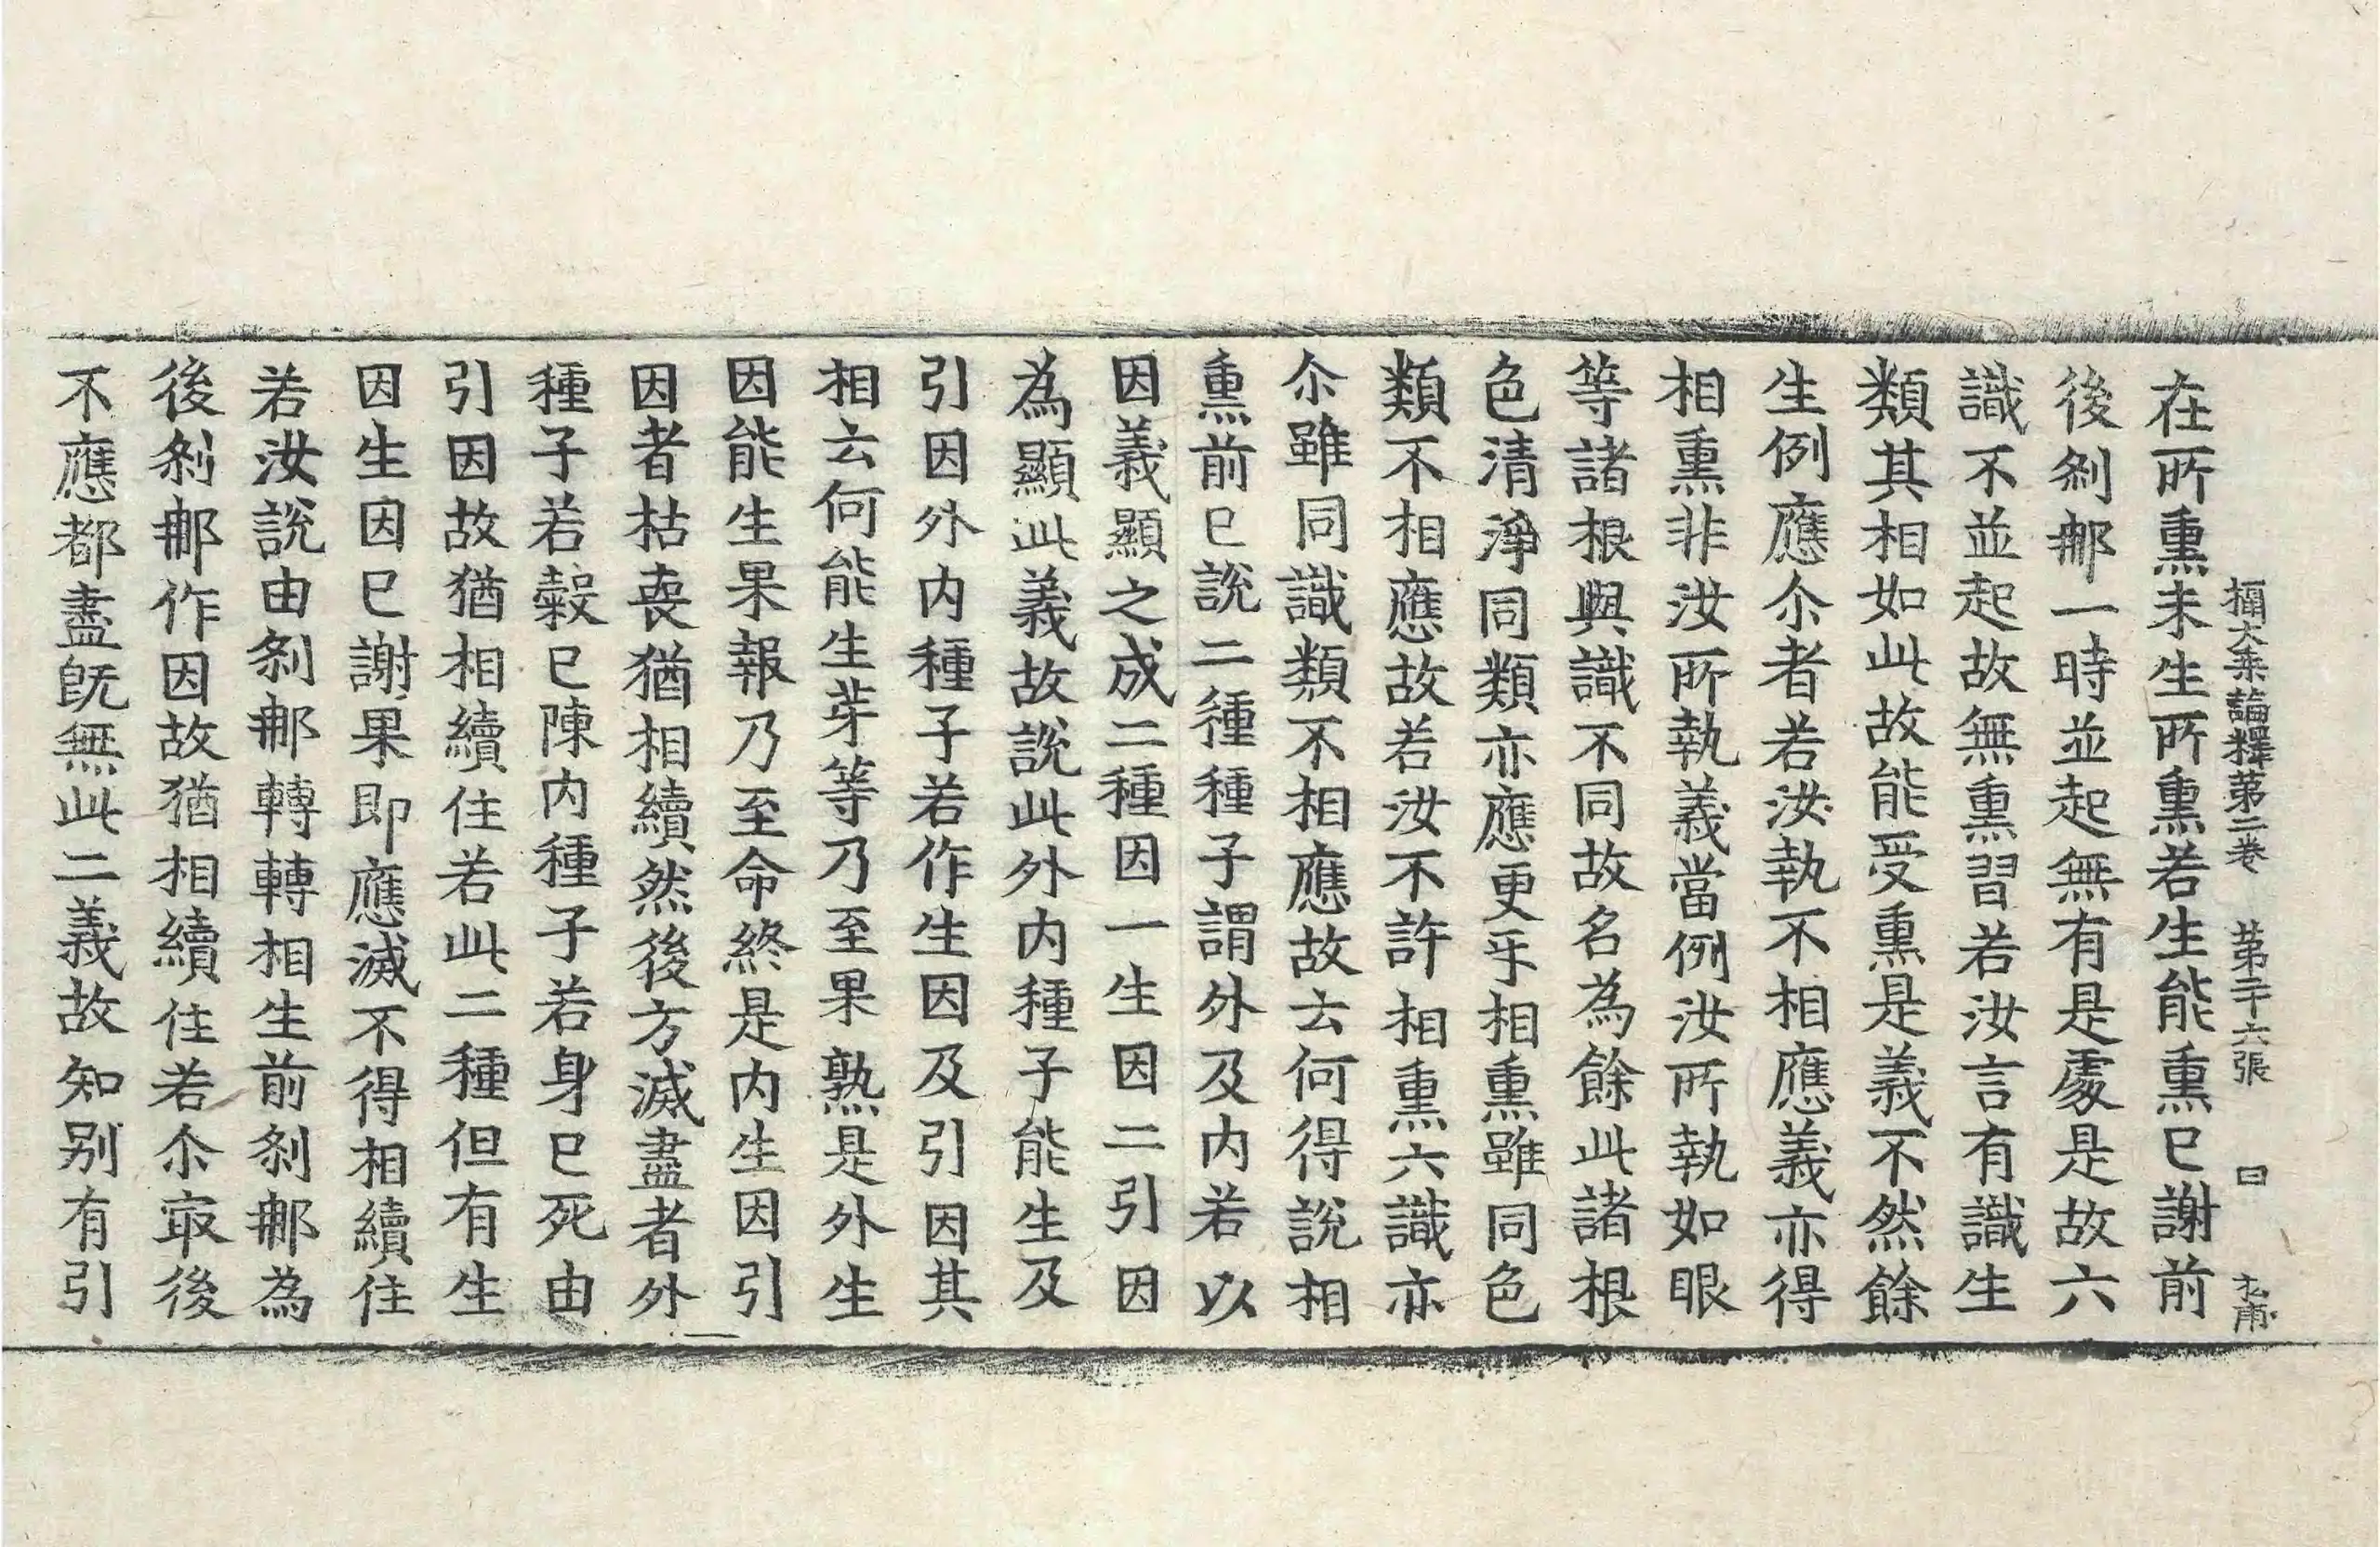 攝大乗論釋第二巻　第二十六張　曰
在所熏未生所熏若生能熏已謝前
後剎那一時並起無有是處是故六
識不並起故無熏習若汝言有識生
類其相如此故能受熏是義不然餘
生例應尒者若汝執不相應義亦得
相熏非汝所執義當例汝所執如眼
等諸根與識不同故名為餘此諸根
色清淨同類亦應更乎相熏雖同色
類不相應故若汝不許相熏六識亦
尒雖同識類不相應故云何得說相
熏前已說二種種子謂外及内若以
因義顯之成二種因一生因二引因
為顯此義故說此外内種子能生及
引因外内種子若作生因及引因其
相云何能生芽等乃至果熟是外生
因能生果報乃至命終是内生因引
因者枯喪猶相續然後方滅盡者外
種子若穀已陳内種子若身已死由
引因故猶相續住若此二種但有生
因生因已謝果即應滅不得相續住
若汝說由剎那轉轉相生前剎那為
後剎那作因故猶相續住若尒㝡後
不應都盡旣無此二義故知别有引